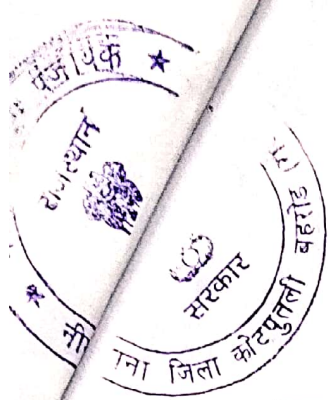 पंजीयक ★
राजस्थान
सरकार
★ नी
ना जिला कोटपुतली बहरोड़